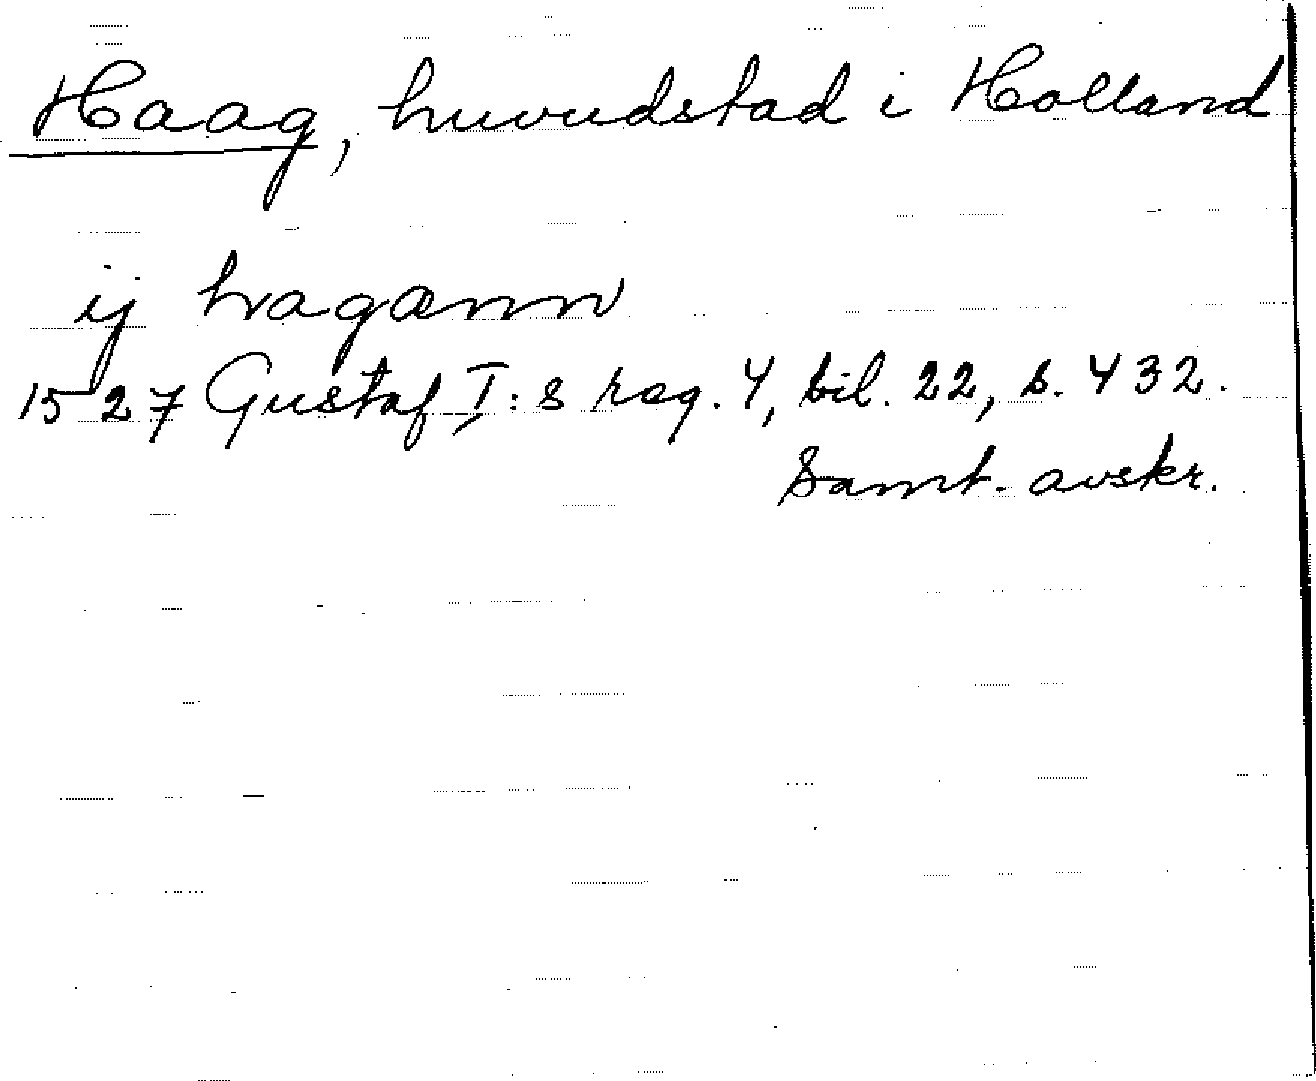 Haag, huvudstad i Holland
ij hagann
1527 Gustaf I:s reg. 4, bil. 22, s. 432.
Samt. avskr.